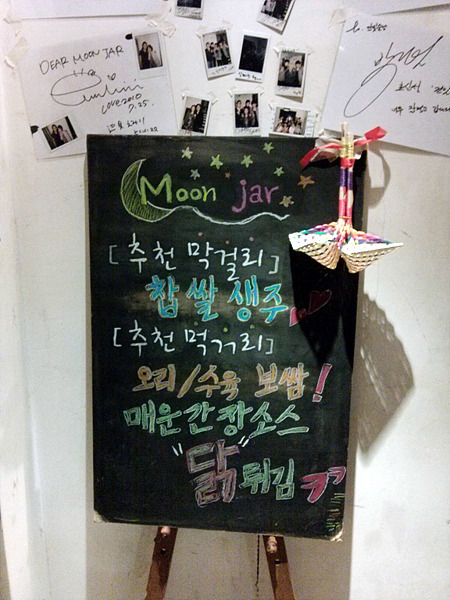 DEAR MOON JAR
LOVE2010
7.25.
Moon jar
[추천 막걸리]
찹쌀생주
[추천 먹거리]
오리/수육 보쌈!
매운간장소스
"닭"튀김ㅋㅋ